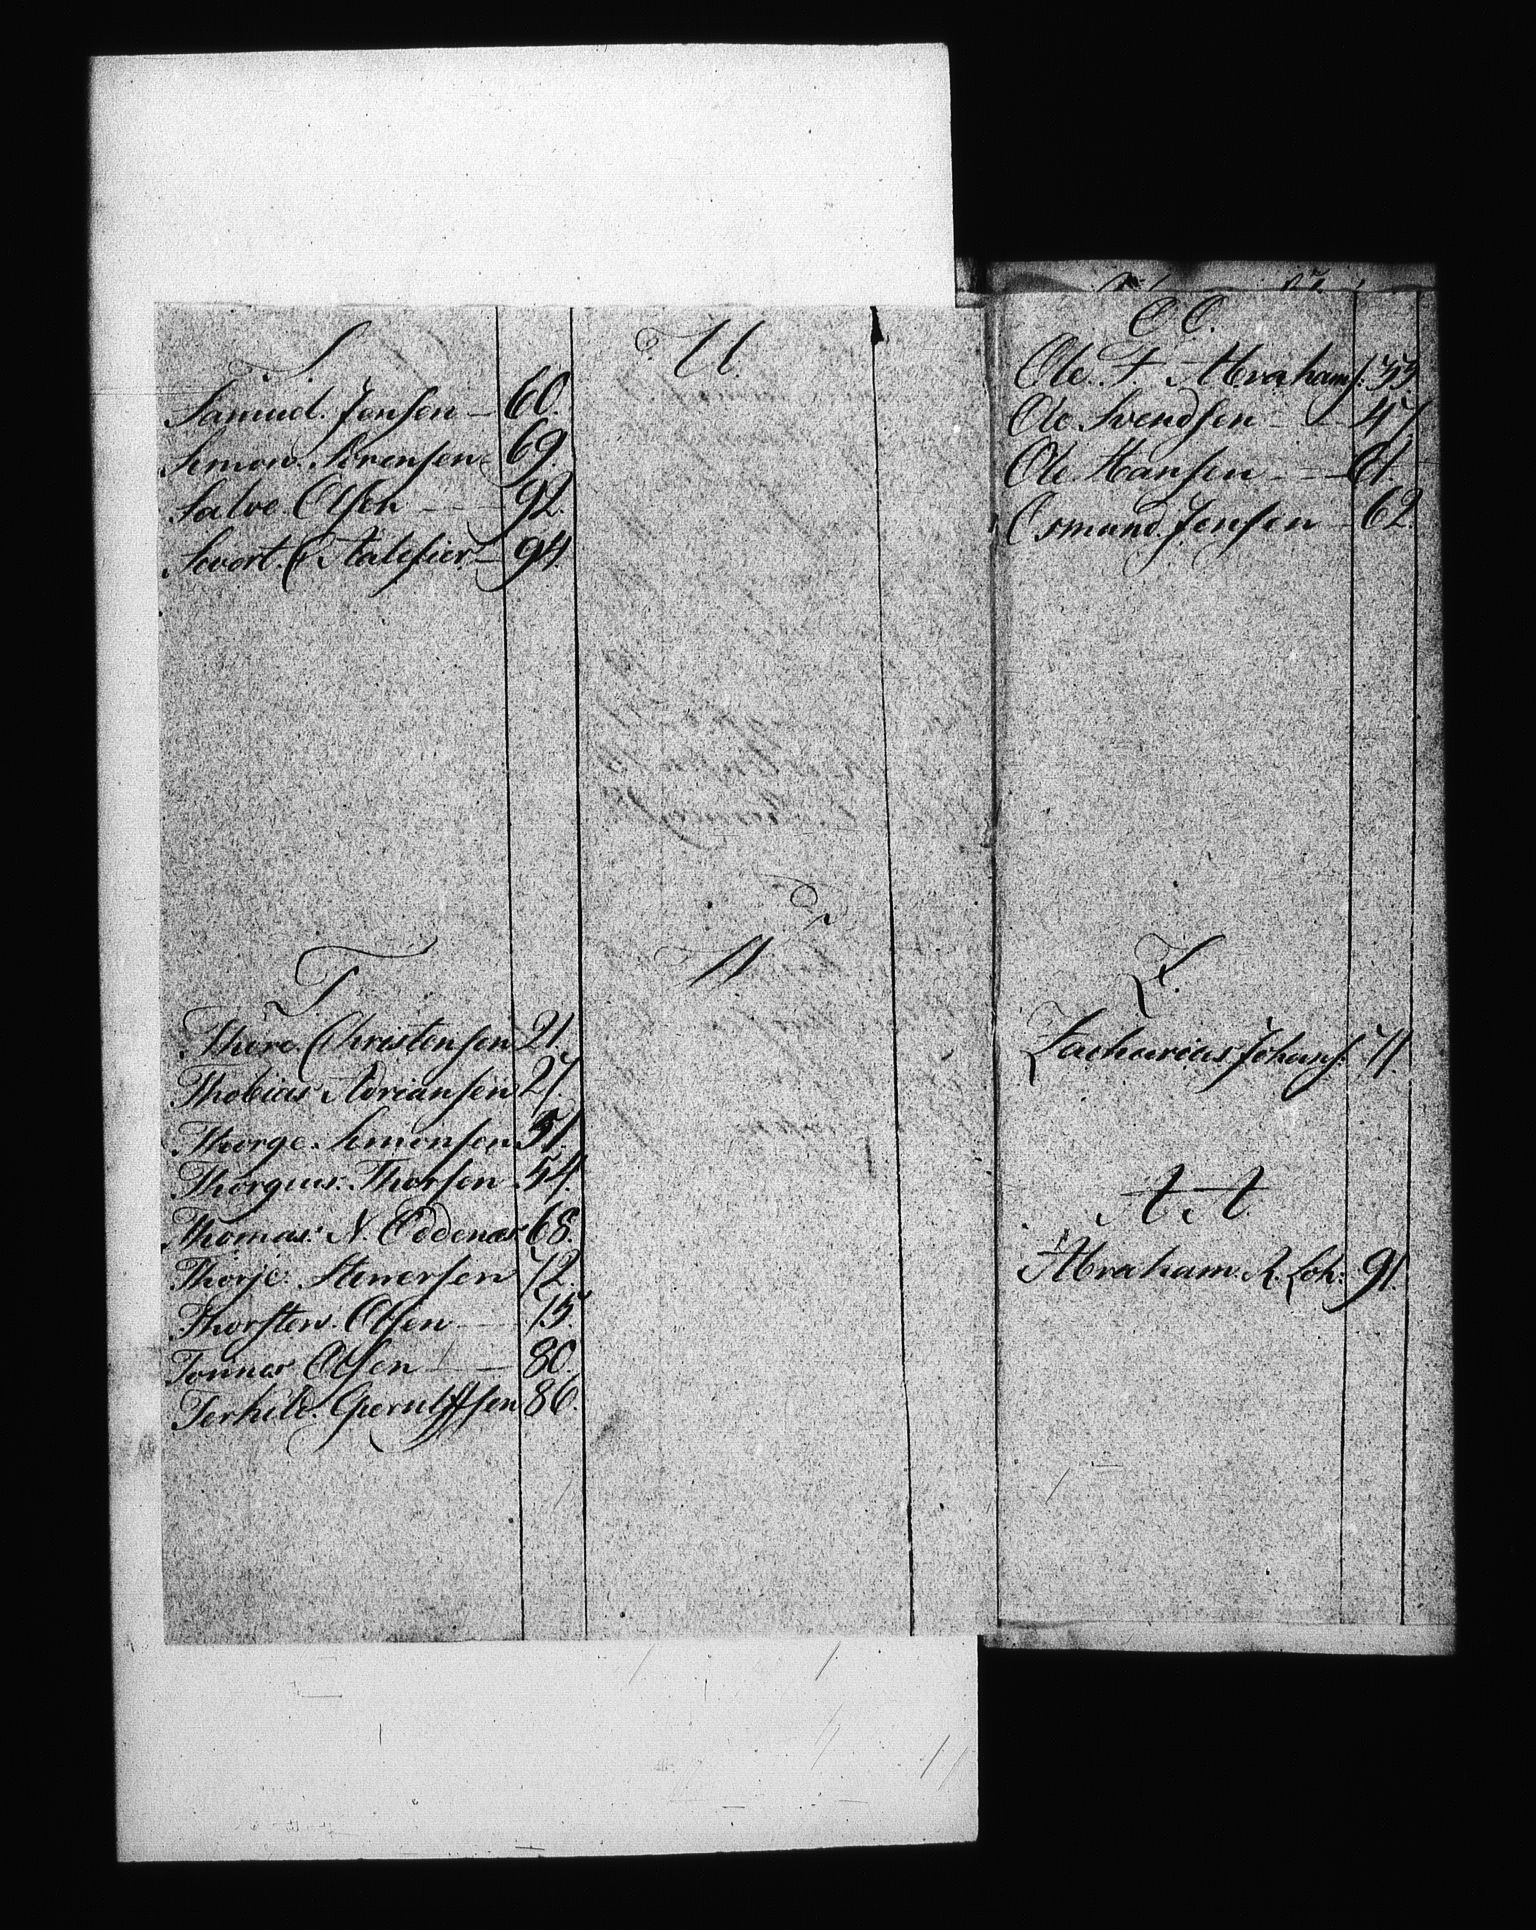 S.
Samuel. Jensen — 60.
Simon. Sörensen 69.
Salve. Olsen — — 92.
Sivert. C Aalefier — 94.
T
Thore. Christensen 21.
Thobias Adriansen 27.
Thorge. Simonsen 51.
Thorgius. Thorsen 54.
Thomas. N. Oddenæs 68.
Thorje. Stenersen 72.
Thorsten. Olsen — 75.
Tönnes Olsen — — 80.
Terkild. Gjerulffsen 86.
U.
W
O O.
Ole. T. Abrahams: 33
Ole Svendsen — 47
Ole Hansen — — 61.
Osmund. Jensen — 62.
Z.
Zacharias Johans: 71.
A A
Abraham. R. Loh: 91.